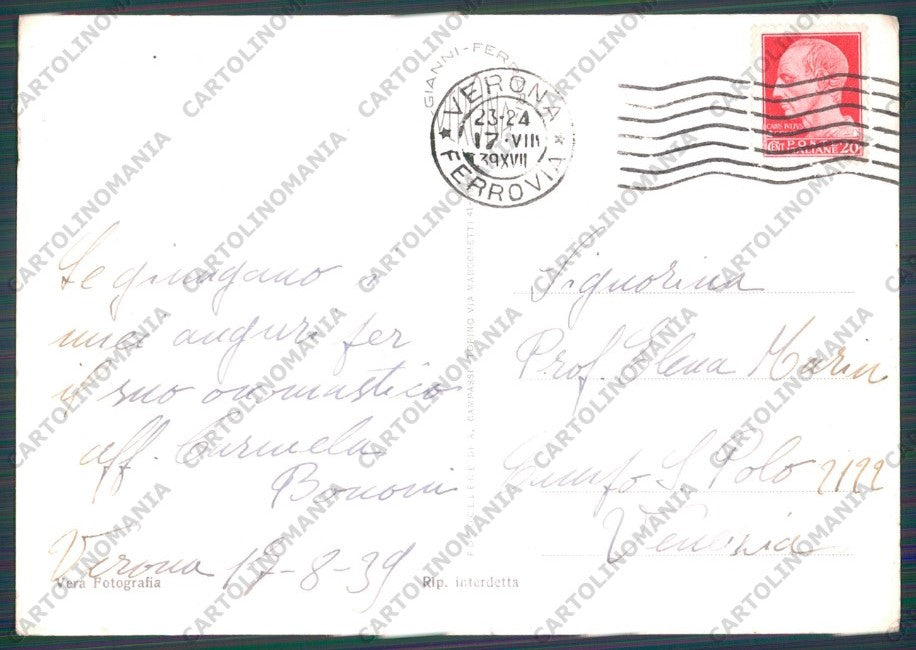 GIANNI-FERR
VERONA
23-24
17·VIII
39XVII
FERROVIA
POSTE ITALIANE
CENT 20
Le giungano i
miei auguri per
il suo onomastico
aff. Carmela
Bononi
Verona 17-8-39
Signorina
Prof. Elena Marin
Campo S. Polo 2122
Venezia
Vera Fotografia
Rip. interdetta
CARTOLINOMANIA